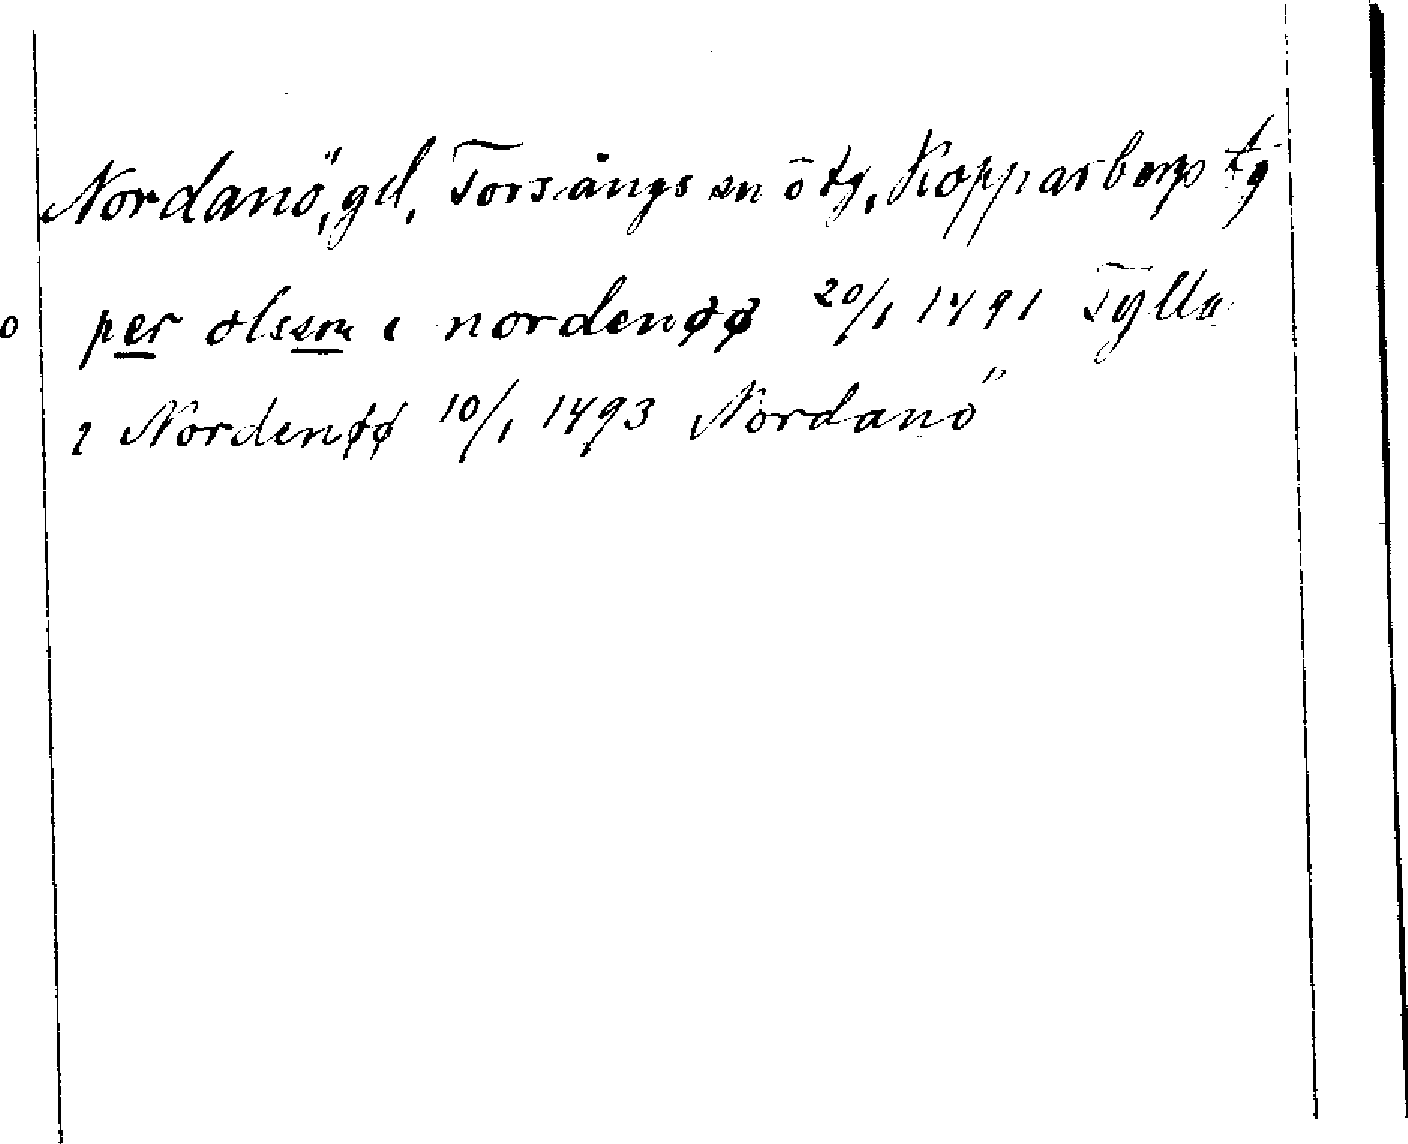 Nordanö, gd, Torsångs sn o tg, Kopparbergs tg
per olsson i nordenøø 20/1 1491 Tylla
i Nordenøø 10/1 1493 Nordanö